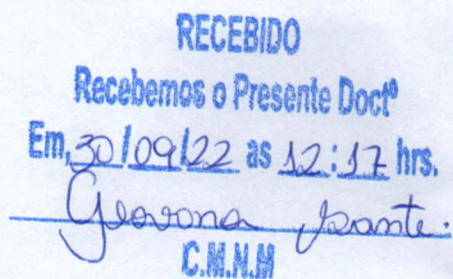 RECEBIDO
Recebemos o Presente Doctº
Em, 30/09/22 as 12:17 hrs.
Geovana
C.M.N.M